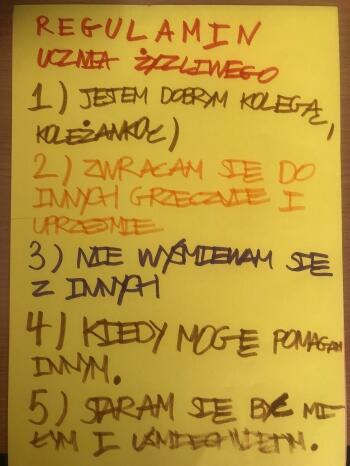 REGULAMIN
UCZNIA ŻYZLIWEGO
1) JESTEM DOBRYM KOLEGĄ,
KOLEŻANKOŁ)
2) ZWRACAM SIĘ DO
INNYCH GRZECZNIE I
UPRZEJMIE
3) NIE WYŚMIEWAM SIĘ
Z INNYCH
4) KIEDY MOGĘ POMAGAM
INNYM.
5) STARAM SIĘ BYĆ MI-
ŁYM I UŚMIECHNIĘTYM.